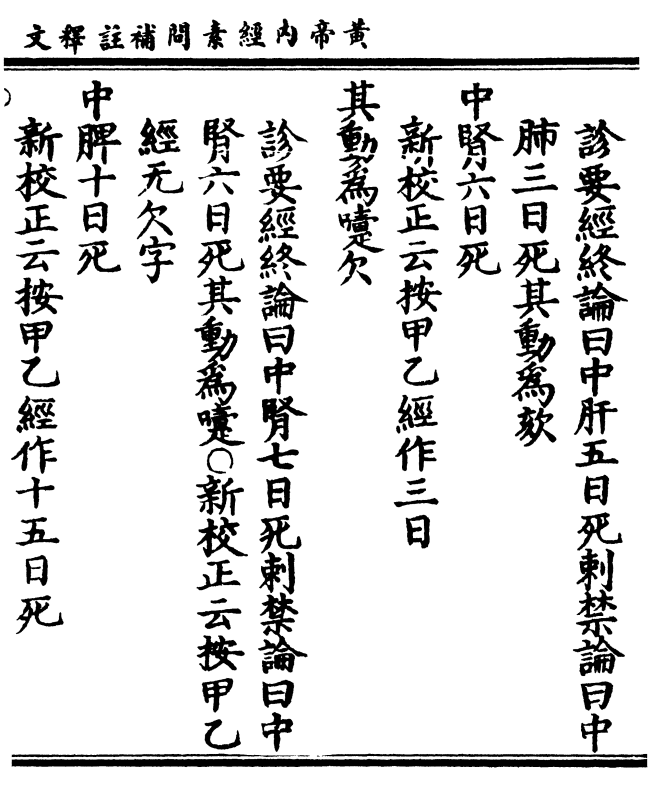 黃帝內經素問補註釋文
診要經終論曰中肝五日死刺禁論曰中
肺三日死其動爲欬
中腎六日死
新校正云按甲乙經作三日
其動爲嚏欠
診要經終論曰中腎七日死刺禁論曰中
腎六日死其動爲嚏○新校正云按甲乙
經无欠字
中脾十日死
新校正云按甲乙經作十五日死